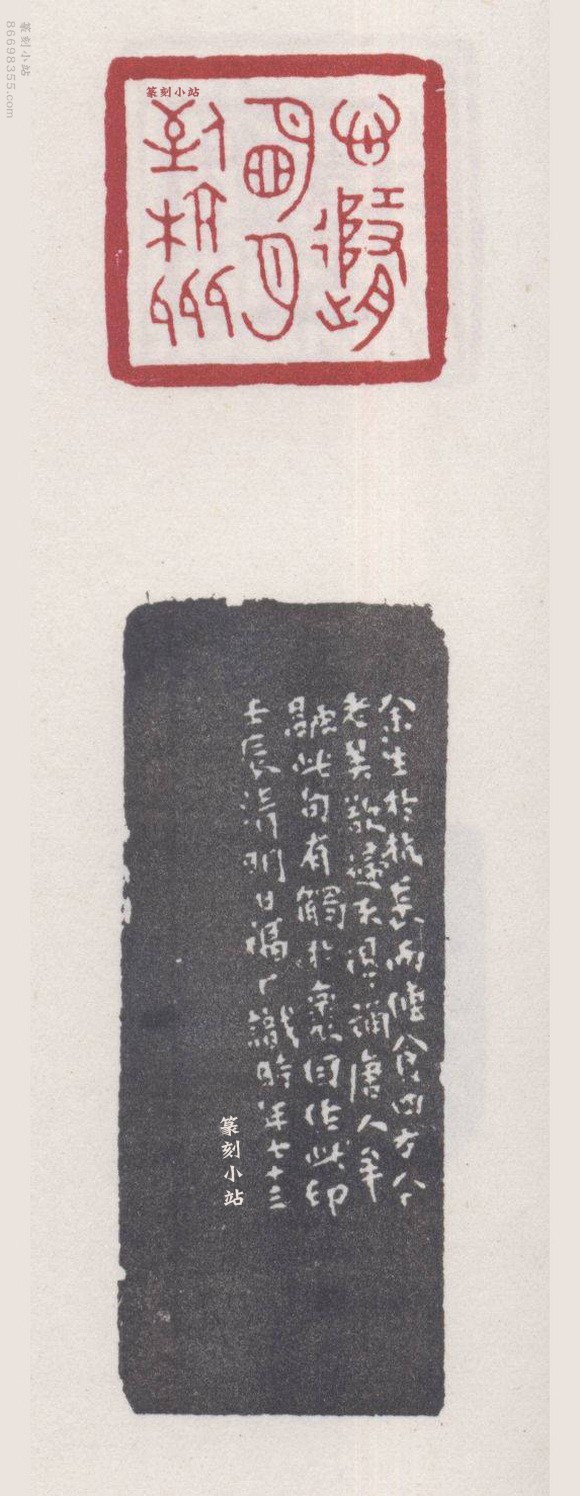 明月
到杭州
余生於杭長而傭食四方今
老矣欲歸未得誦唐人牟
融此句有觸於懷因作此印
壬辰清明日福厂識時年七十三
篆刻小站
篆刻小站
篆刻小站
86698355.com